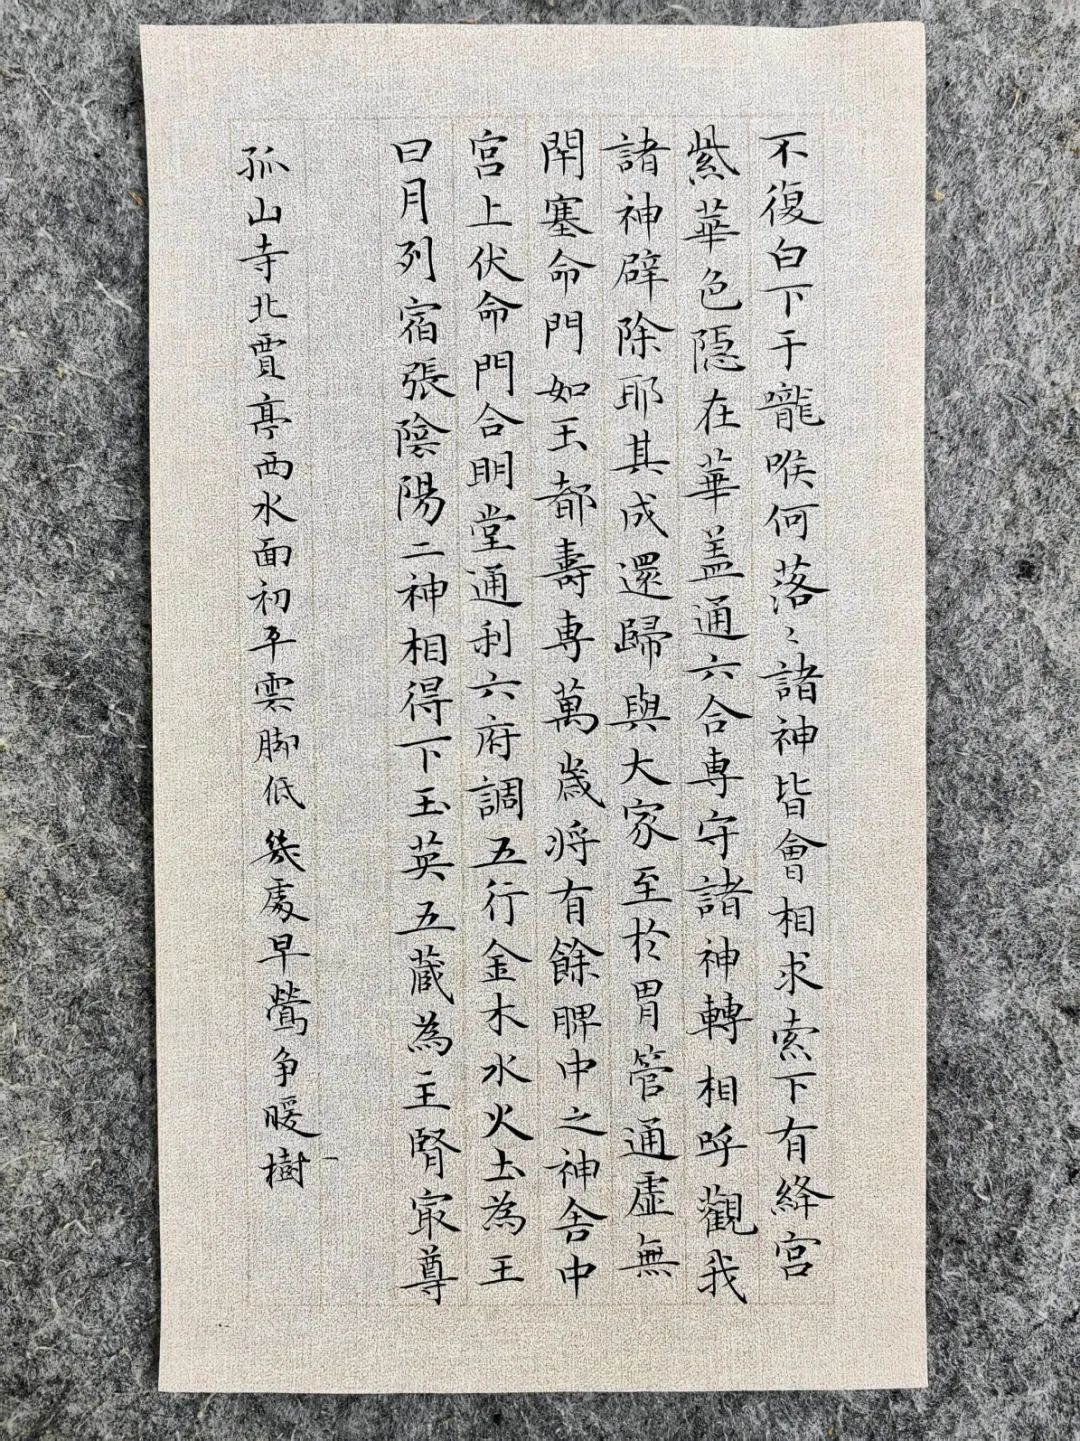 不復白下于嚨喉何落〻諸神皆會相求索下有絳宮
紫華色隱在華盖通六合專守諸神轉相呼觀我
諸神辟除耶其成還歸與大家至於胃管通虛無
閇塞命門如玉都壽專萬歲将有餘脾中之神舍中
宮上伏命門合明堂通利六府調五行金木水火土為王
日月列宿張陰陽二神相得下玉英五藏為主腎冣尊
孤山寺北賈亭西水面初平雲脚低幾處早鶯争暖樹